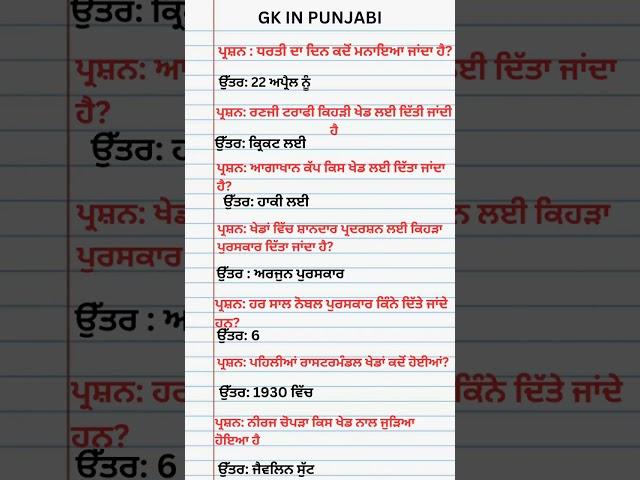 GK IN PUNJABI
ਪ੍ਰਸ਼ਨ : ਧਰਤੀ ਦਾ ਦਿਨ ਕਦੋਂ ਮਨਾਇਆ ਜਾਂਦਾ ਹੈ?
ਉੱਤਰ: 22 ਅਪ੍ਰੈਲ ਨੂੰ
ਪ੍ਰਸ਼ਨ: ਰਣਜੀ ਟਰਾਫੀ ਕਿਹੜੀ ਖੇਡ ਲਈ ਦਿੱਤੀ ਜਾਂਦੀ
ਹੈ
ਉੱਤਰ: ਕ੍ਰਿਕਟ ਲਈ
ਪ੍ਰਸ਼ਨ: ਆਗਾਖਾਨ ਕੱਪ ਕਿਸ ਖੇਡ ਲਈ ਦਿੱਤਾ ਜਾਂਦਾ
ਹੈ?
ਉੱਤਰ: ਹਾਕੀ ਲਈ
ਪ੍ਰਸ਼ਨ: ਖੇਡਾਂ ਵਿੱਚ ਸ਼ਾਨਦਾਰ ਪ੍ਰਦਰਸ਼ਨ ਲਈ ਕਿਹੜਾ
ਪੁਰਸਕਾਰ ਦਿੱਤਾ ਜਾਂਦਾ ਹੈ?
ਉੱਤਰ : ਅਰਜੁਨ ਪੁਰਸਕਾਰ
ਪ੍ਰਸ਼ਨ: ਹਰ ਸਾਲ ਨੋਬਲ ਪੁਰਸਕਾਰ ਕਿੰਨੇ ਦਿੱਤੇ ਜਾਂਦੇ
ਹਨ?
ਉੱਤਰ: 6
ਪ੍ਰਸ਼ਨ: ਪਹਿਲੀਆਂ ਰਾਸਟਰਮੰਡਲ ਖੇਡਾਂ ਕਦੋਂ ਹੋਈਆਂ?
ਉੱਤਰ: 1930 ਵਿੱਚ
ਪ੍ਰਸ਼ਨ: ਨੀਰਜ ਚੋਪੜਾ ਕਿਸ ਖੇਡ ਨਾਲ ਜੁੜਿਆ
ਹੋਇਆ ਹੈ
ਉੱਤਰ: ਜੈਵਲਿਨ ਸੁੱਟ